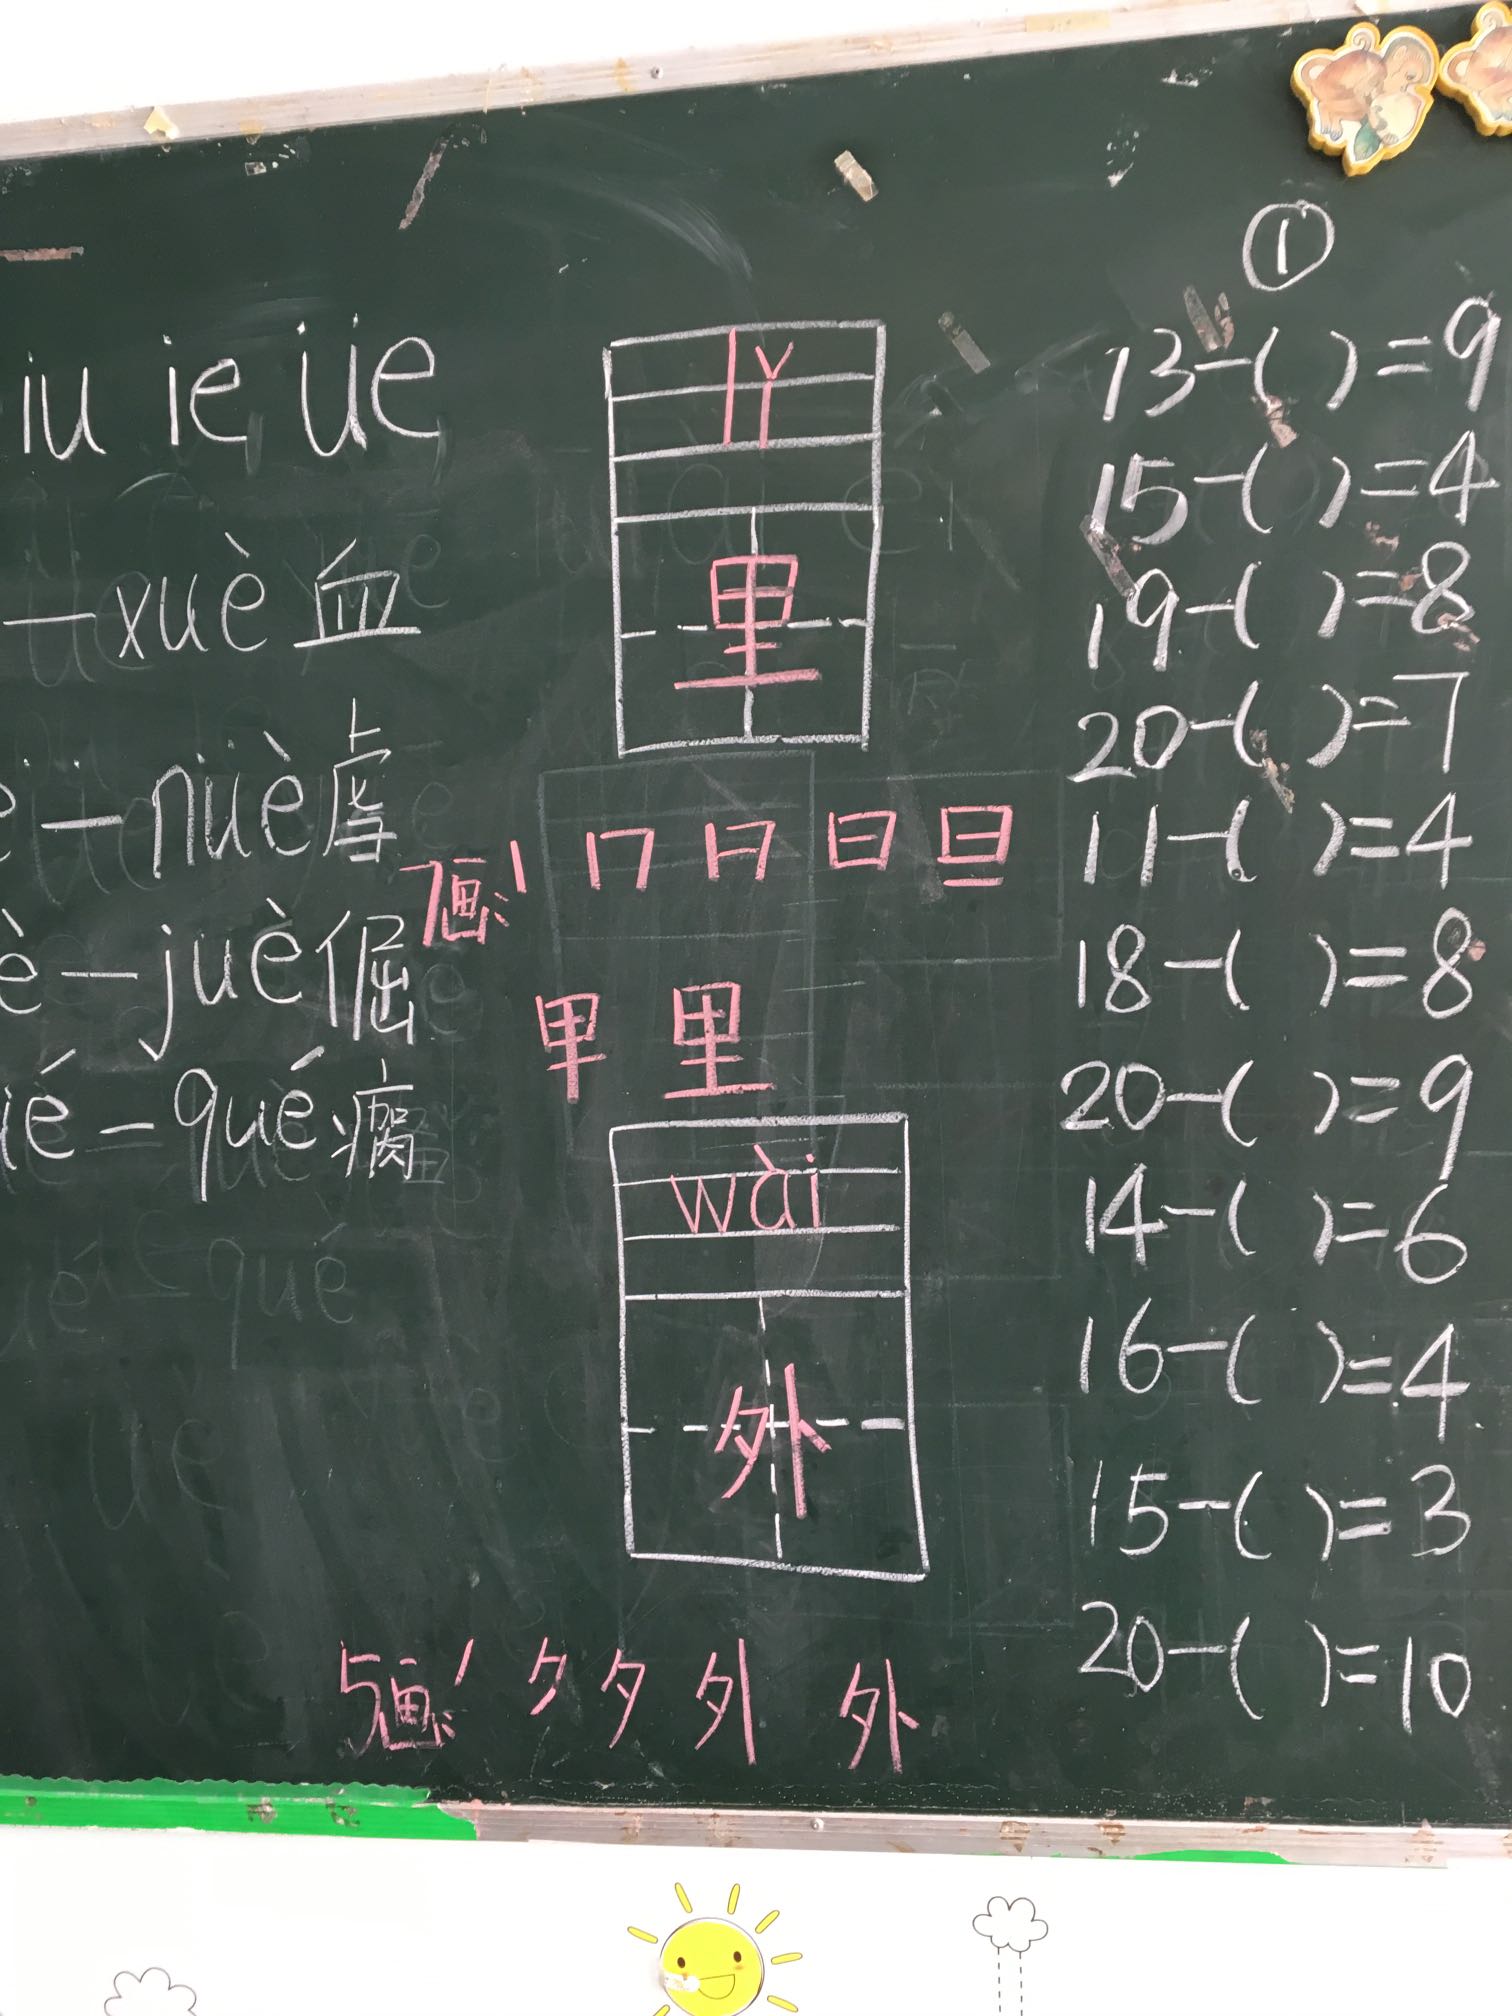 iu ie üe
—xuè 血
—nüè 虐
è—juè 倔
ié—qué 瘸
lǐ
里
7画: 丨 冂 日 旦
甲 里
wài
外
5画: 丿 夕 外
①
13-( )=9
15-( )=4
19-( )=8
20-( )=7
11-( )=4
18-( )=8
20-( )=9
14-( )=6
16-( )=4
15-( )=3
20-( )=10